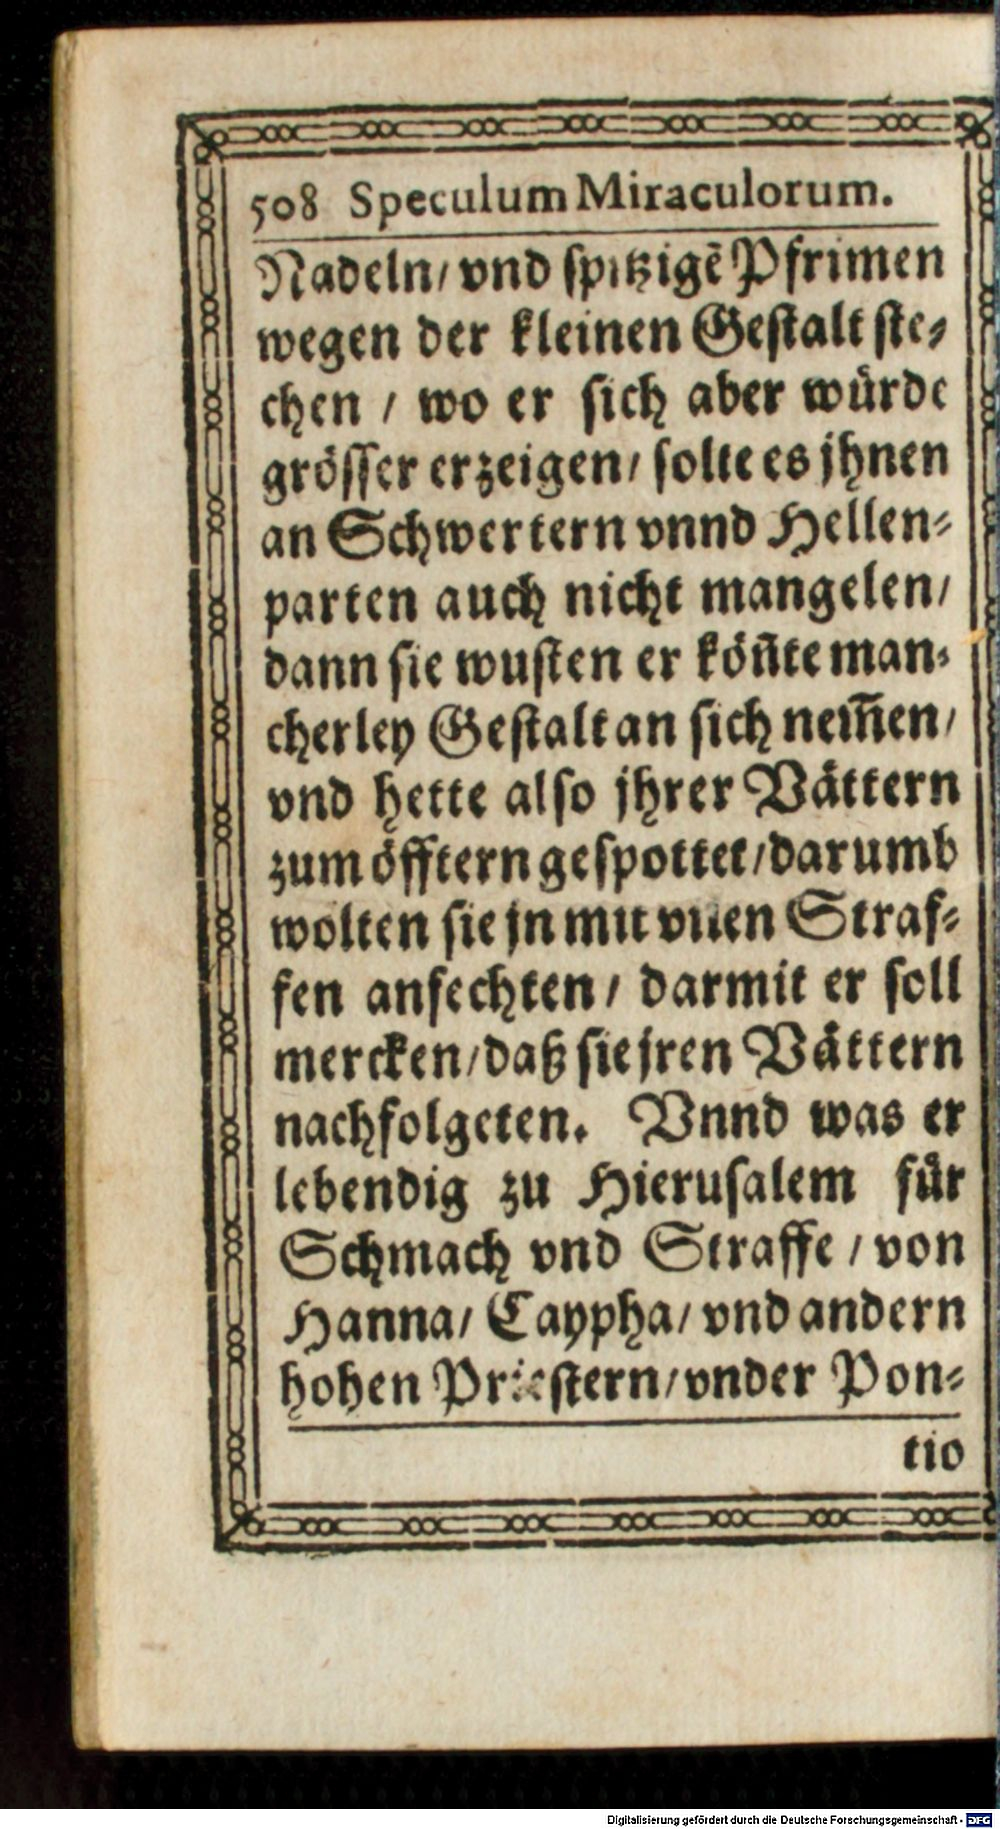 508 Speculum Miraculorum.
Nadeln/ vnd spitzigẽ Pfrimen
wegen der kleinen Gestalt ste⸗
chen / wo er sich aber würde
grösser erzeigen/ solte es jhnen
an Schwertern vnnd Hellen⸗
parten auch nicht mangelen/
dann sie wusten er kön̄te man⸗
cherley Gestalt an sich nem̄en/
vnd hette also jhrer Vättern
zum öfftern gespottet/ darumb
wolten sie jn mit vilen Straf⸗
fen anfechten / darmit er soll
mercken/ daß sie jren Vättern
nachfolgeten. Vnnd was er
lebendig zu Hierusalem für
Schmach vnd Straffe / von
Hanna/ Caypha/ vnd andern
hohen Priestern/ vnder Pon⸗
tio
Digitalisierung gefördert durch die Deutsche Forschungsgemeinschaft - DFG